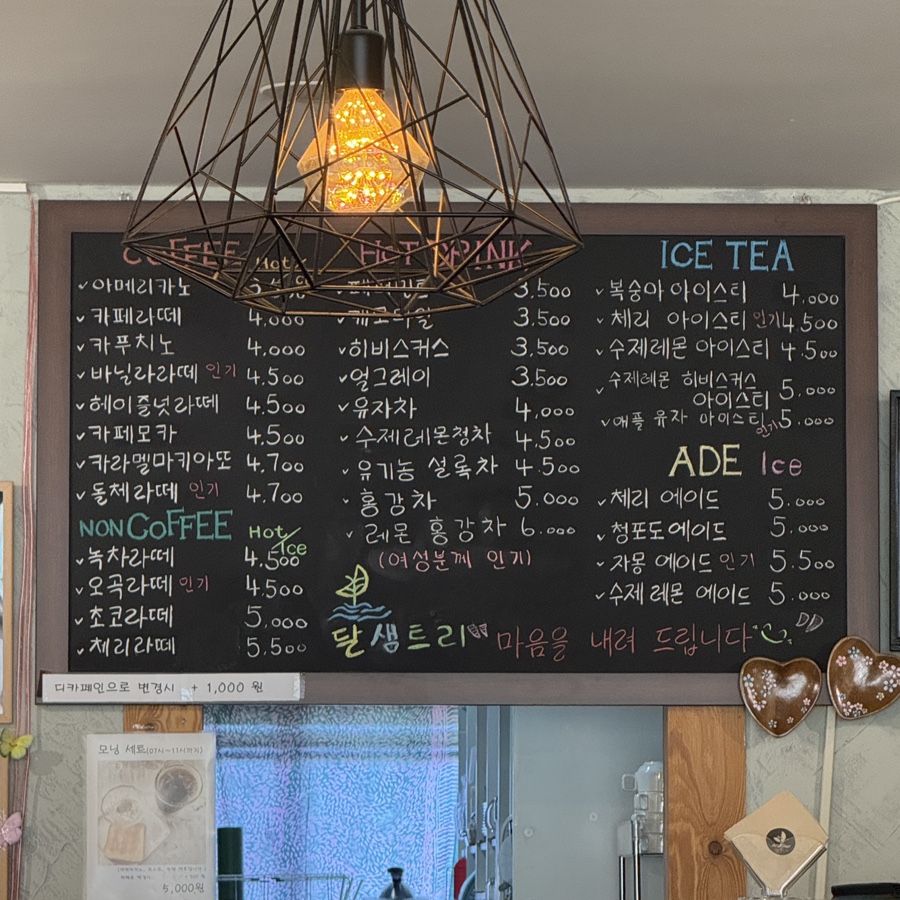 COFFEE Hot
아메리카노
카페라떼 4.000
카푸치노 4.000
바닐라라떼 인기 4.500
헤이즐넛라떼 4.500
카페모카 4.500
카라멜마키아또 4.700
돌체라떼 인기 4.700
NON COFFEE Hot/Ice
녹차라떼 4.500
오곡라떼 인기 4.500
초코라떼 5.000
체리라떼 5.500
HOT DRINK
3.500
3.500
히비스커스 3.500
얼그레이 3.500
유자차 4.000
수제레몬청차 4.500
유기농 설록차 4.500
홍감차 5.000
레몬 홍감차 6.000
(여성분께 인기)
ICE TEA
복숭아 아이스티 4.000
체리 아이스티 인기 4.500
수제레몬 아이스티 4.500
수제레몬 히비스커스
아이스티 5.000
애플 유자 아이스티 인기 5.000
ADE Ice
체리 에이드 5.000
청포도에이드 5.000
자몽 에이드 인기 5.500
수제 레몬 에이드 5.000
달샘트리 마음을 내려 드립니다
디카페인으로 변경시 + 1,000 원
모닝 세트(07시~11시까지)
5,000원